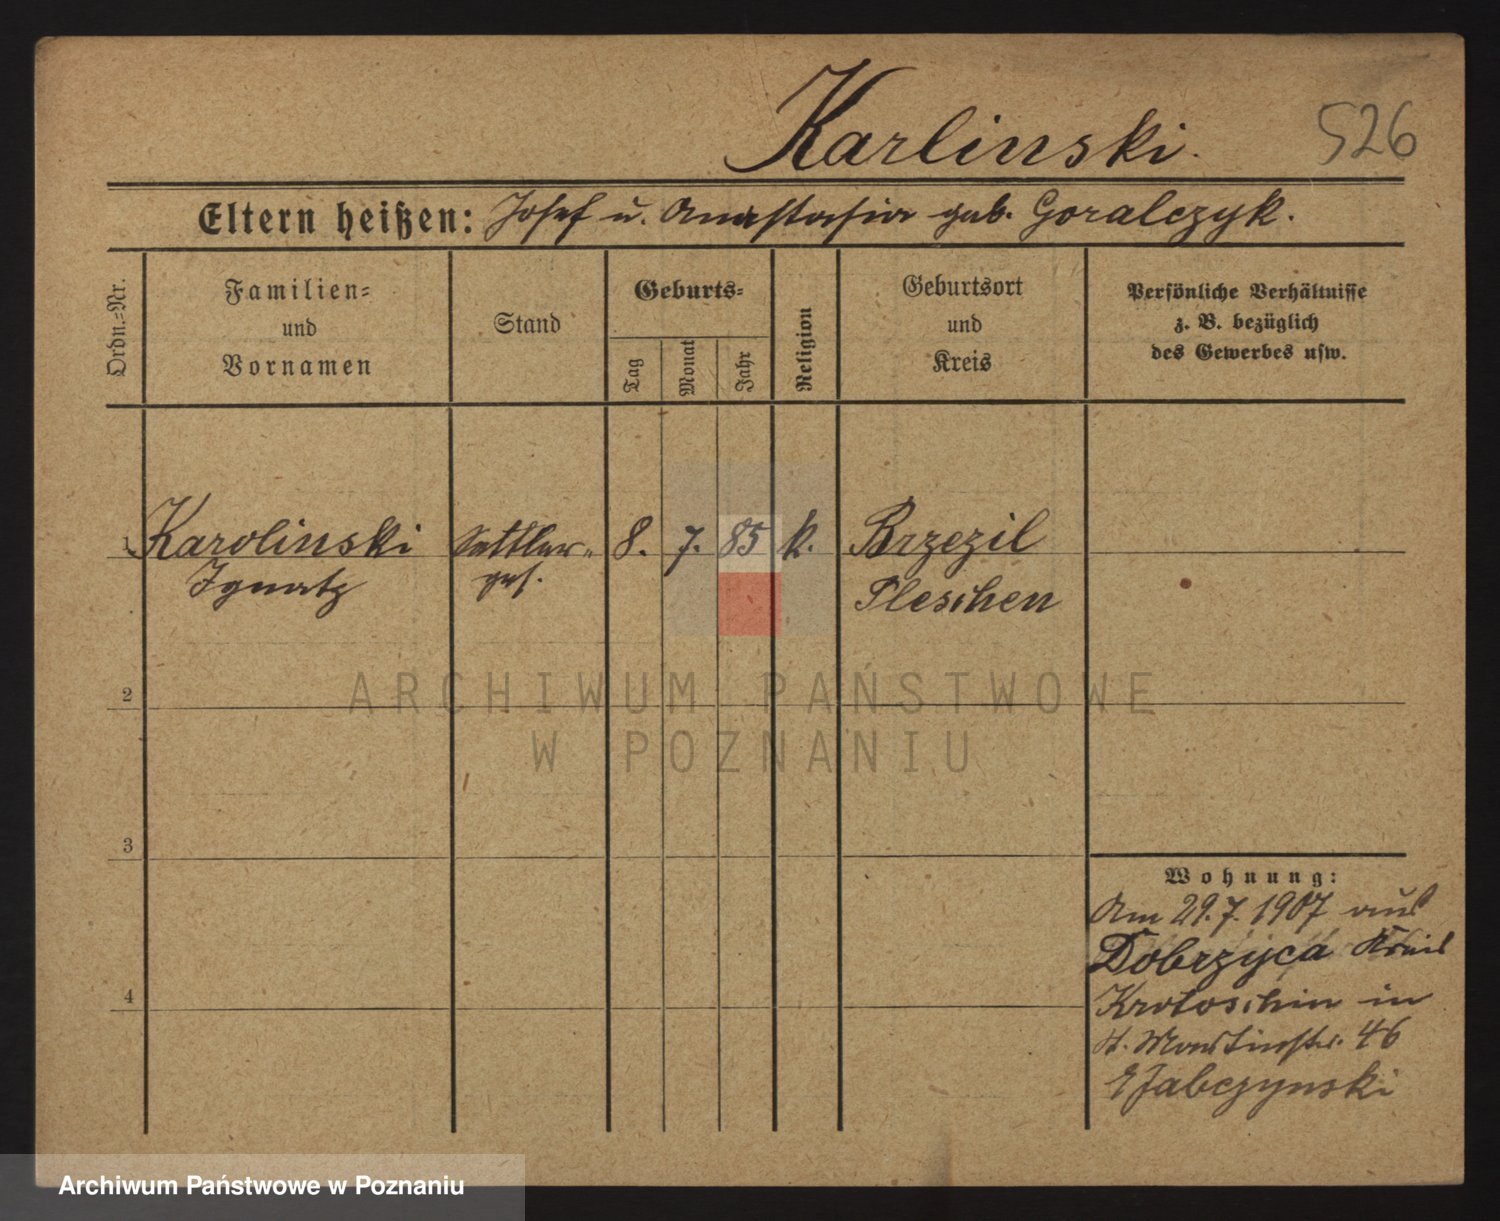 Karlinski.
526
Eltern heißen: Josef u. Anastasia geb. Goralczyk.
Ordn.-Nr.
Familien-
und
Vornamen
Stand
Geburts-
Tag
Monat
Jahr
Religion
Geburtsort
und
Kreis
Persönliche Verhältnisse
z. B. bezüglich
des Gewerbes usw.
1 Karolinski Sattler- 8. 7. 85 k. Brzezil
Ignatz ges. Pleschen
2
ARCHIWUM PAŃSTWOWE
W POZNANIU
3
Wohnung:
Am 29.7.1907 aus
Dobrzyca Kreis
4
Krotoschin in
St. Martinstr. 46
Jabczynski
Archiwum Państwowe w Poznaniu